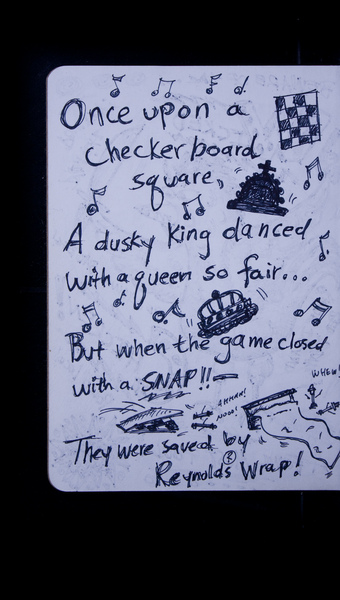 Once upon a
checkerboard
square,
A dusky King danced
with a queen so fair...
But when the game closed
with a SNAP!!-
AHHHH!
NOOO!
WHEW!
They were saved by
Reynolds® Wrap!